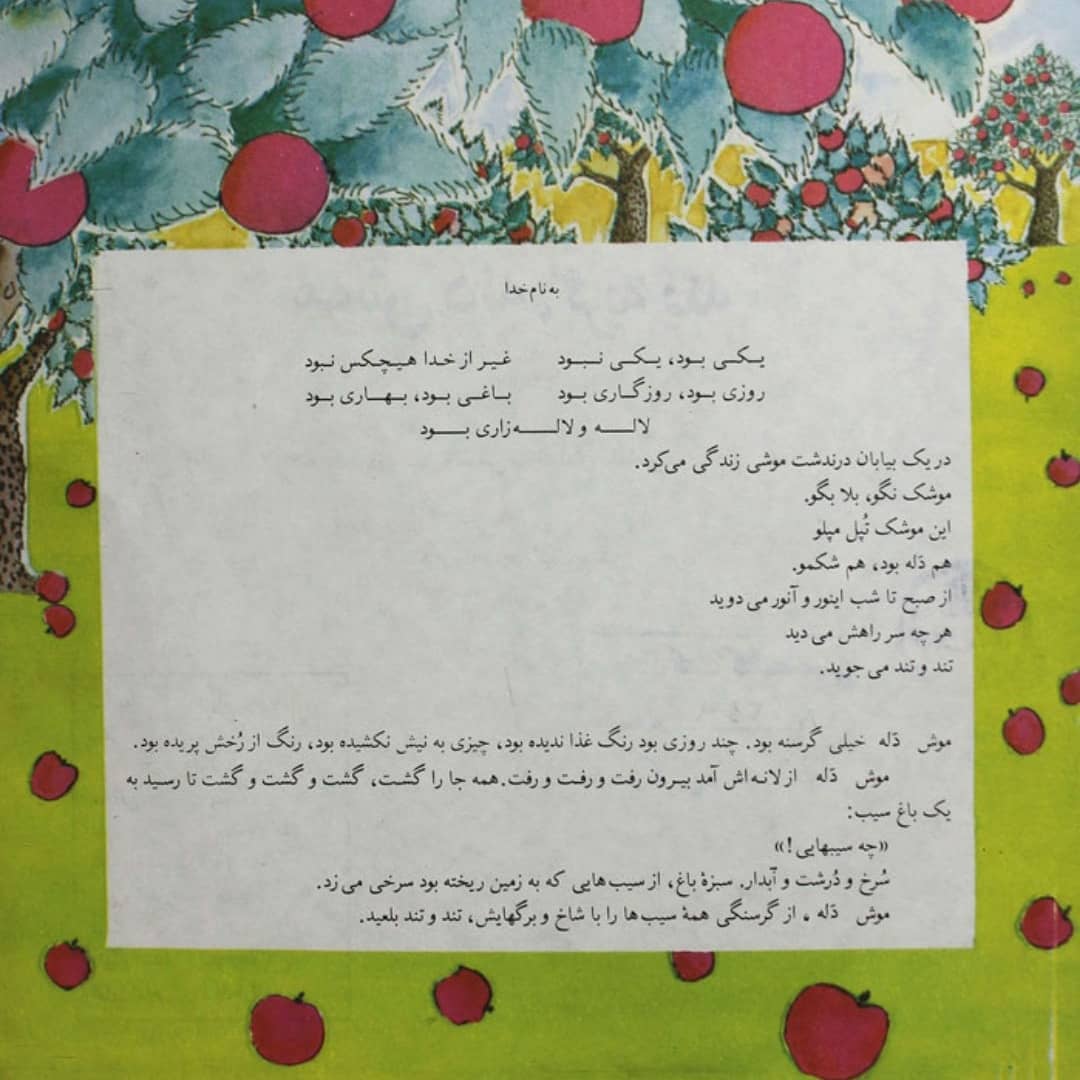 به نام خدا
یکی بود، یکی نبود غیر از خدا هیچکس نبود
روزی بود، روزگاری بود باغی بود، بهاری بود
لاله و لاله زاری بود
در یک بیابان درندشت موشی زندگی می‌کرد.
موشک نگو، بلا بگو.
این موشک تُپل مپلو
هم دَله بود، هم شکمو.
از صبح تا شب اینور و آنور می دوید
هر چه سر راهش می دید
تند و تند می جوید.
موش دَله خیلی گرسنه بود. چند روزی بود رنگ غذا ندیده بود، چیزی به نیش نکشیده بود، رنگ از رُخش پریده بود.
موش دَله از لانه اش آمد بیرون رفت و رفت و رفت. همه جا را گشت، گشت و گشت و گشت تا رسید به
یک باغ سیب:
«چه سیبهایی!»
سُرخ و دُرشت و آبدار. سبزهٔ باغ، از سیب هایی که به زمین ریخته بود سرخی می زد.
موش دَله، از گرسنگی همهٔ سیب ها را با شاخ و برگهایش، تند و تند بلعید.